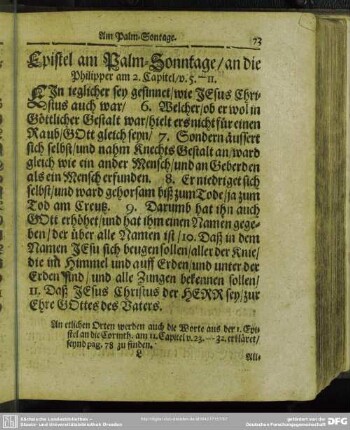 Am Palm-Sontage. 73
Epistel am Palm-Sonntage/ an die
Philipper am 2. Capitel/ v. 5.-11.
EIn ieglicher sey gesinnet/ wie JEsus Chri-
stus auch war/ 6. Welcher/ ob er wol in
Göttlicher Gestalt war/ hielt ers nicht für einen
Raub/ GOtt gleich seyn/ 7. Sondern äussert
sich selbst/ und nahm Knechts Gestalt an/ ward
gleich wie ein ander Mensch/ und an Geberden
als ein Mensch erfunden. 8. Er niedriget sich
selbst/ und ward gehorsam biß zum Tode/ ja zum
Tod am Creutz. 9. Darumb hat ihn auch
GOtt erhöhet/ und hat ihm einen Namen gege-
ben/ der über alle Namen ist/ 10. Daß in dem
Namen JEsu sich beugen sollen/ aller der Knie/
die im Himmel und auff Erden/ und unter der
Erden sind/ und alle Zungen bekennen sollen/
11. Daß JEsus Christus der HERR sey/ zur
Ehre GOttes des Vaters.
An etlichen Orten werden auch die Worte aus der 1. Epi-
stel an die Corinth. am 11. Capitel v. 23.-32. erkläret/
seynd pag. 78 zu finden.
Alle-